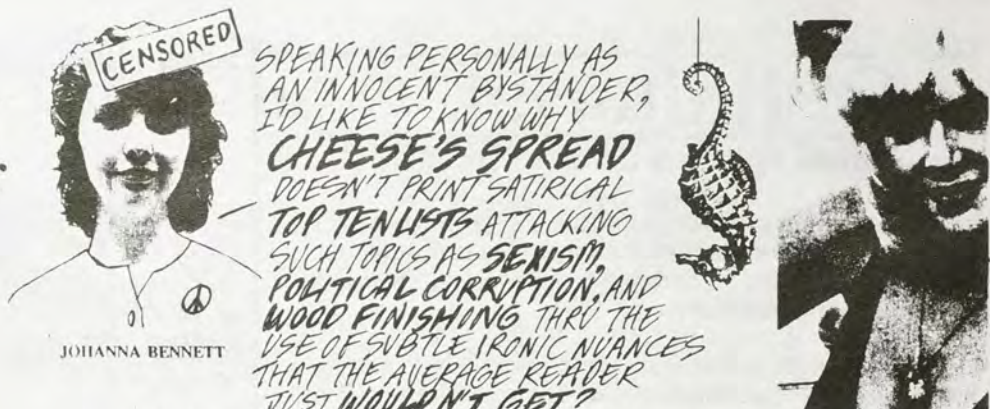 CENSORED
SPEAKING PERSONALLY AS
AN INNOCENT BYSTANDER,
I'D LIKE TO KNOW WHY
CHEESE'S SPREAD
DOESN'T PRINT SATIRICAL
TOP TEN LISTS ATTACKING
SUCH TOPICS AS SEXISM,
POLITICAL CORRUPTION, AND
WOOD FINISHING THRU THE
USE OF SUBTLE IRONIC NUANCES
THAT THE AVERAGE READER
JUST WOULDN'T GET?
JOHANNA BENNETT